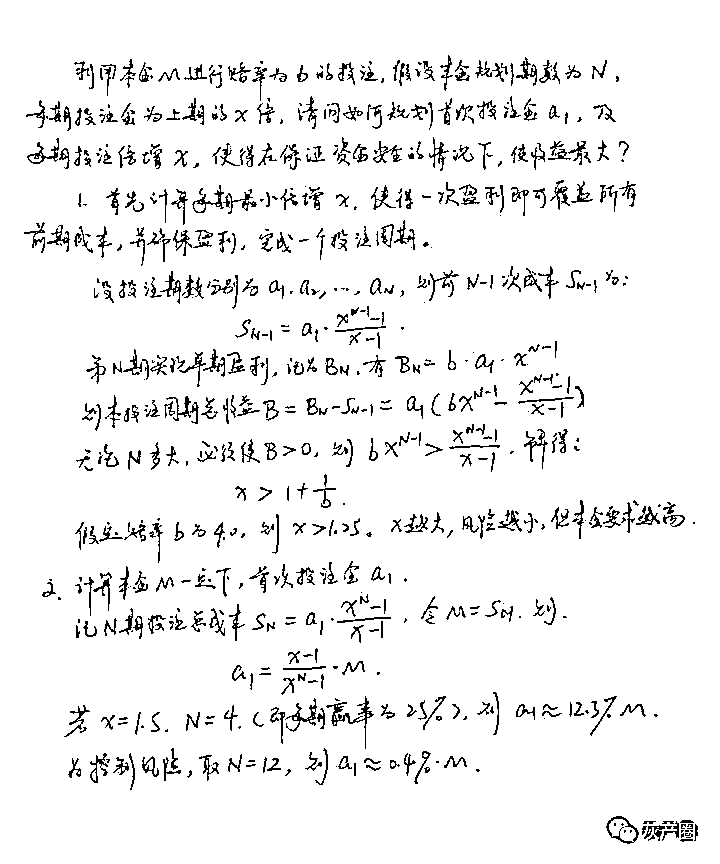 利用本金M进行赔率为b的投注，假设本金规划期数为N，
每期投注金为上期的x倍，请问如何规划首次投注金a₁，及
每期投注倍增x，使得在保证资金安全的情况下，使收益最大？
1. 首先计算每期最小倍增x，使得一次盈利即可覆盖所有
前期成本，并确保盈利，完成一个投注周期。
设投注期数分别为a₁,a₂,…,a_N，则前N-1次成本S_{N-1}为：
S_{N-1} = a₁·\frac{x^{N-1}-1}{x-1}.
第N期实现单期盈利，记为B_N，有B_N = b·a₁·x^{N-1}
则本投注周期总收益B = B_N - S_{N-1} = a₁(bx^{N-1} - \frac{x^{N-1}-1}{x-1})
无论N多大，必须使B>0，则 bx^{N-1} > \frac{x^{N-1}-1}{x-1}. 解得：
x > 1 + \frac{1}{b}.
假定赔率b为4.0，则x>1.25。x越大，风险越小，但本金要求越高.
2. 计算本金M一定下，首次投注金a₁.
记N期投注总成本S_N = a₁·\frac{x^N-1}{x-1}，令M=S_N. 则.
a₁ = \frac{x-1}{x^N-1}·M.
若x=1.5. N=4.（即每期赢率为25%），则 a₁≈12.3%M.
为控制风险，取N=12，则a₁≈0.4%·M.
灰产圈